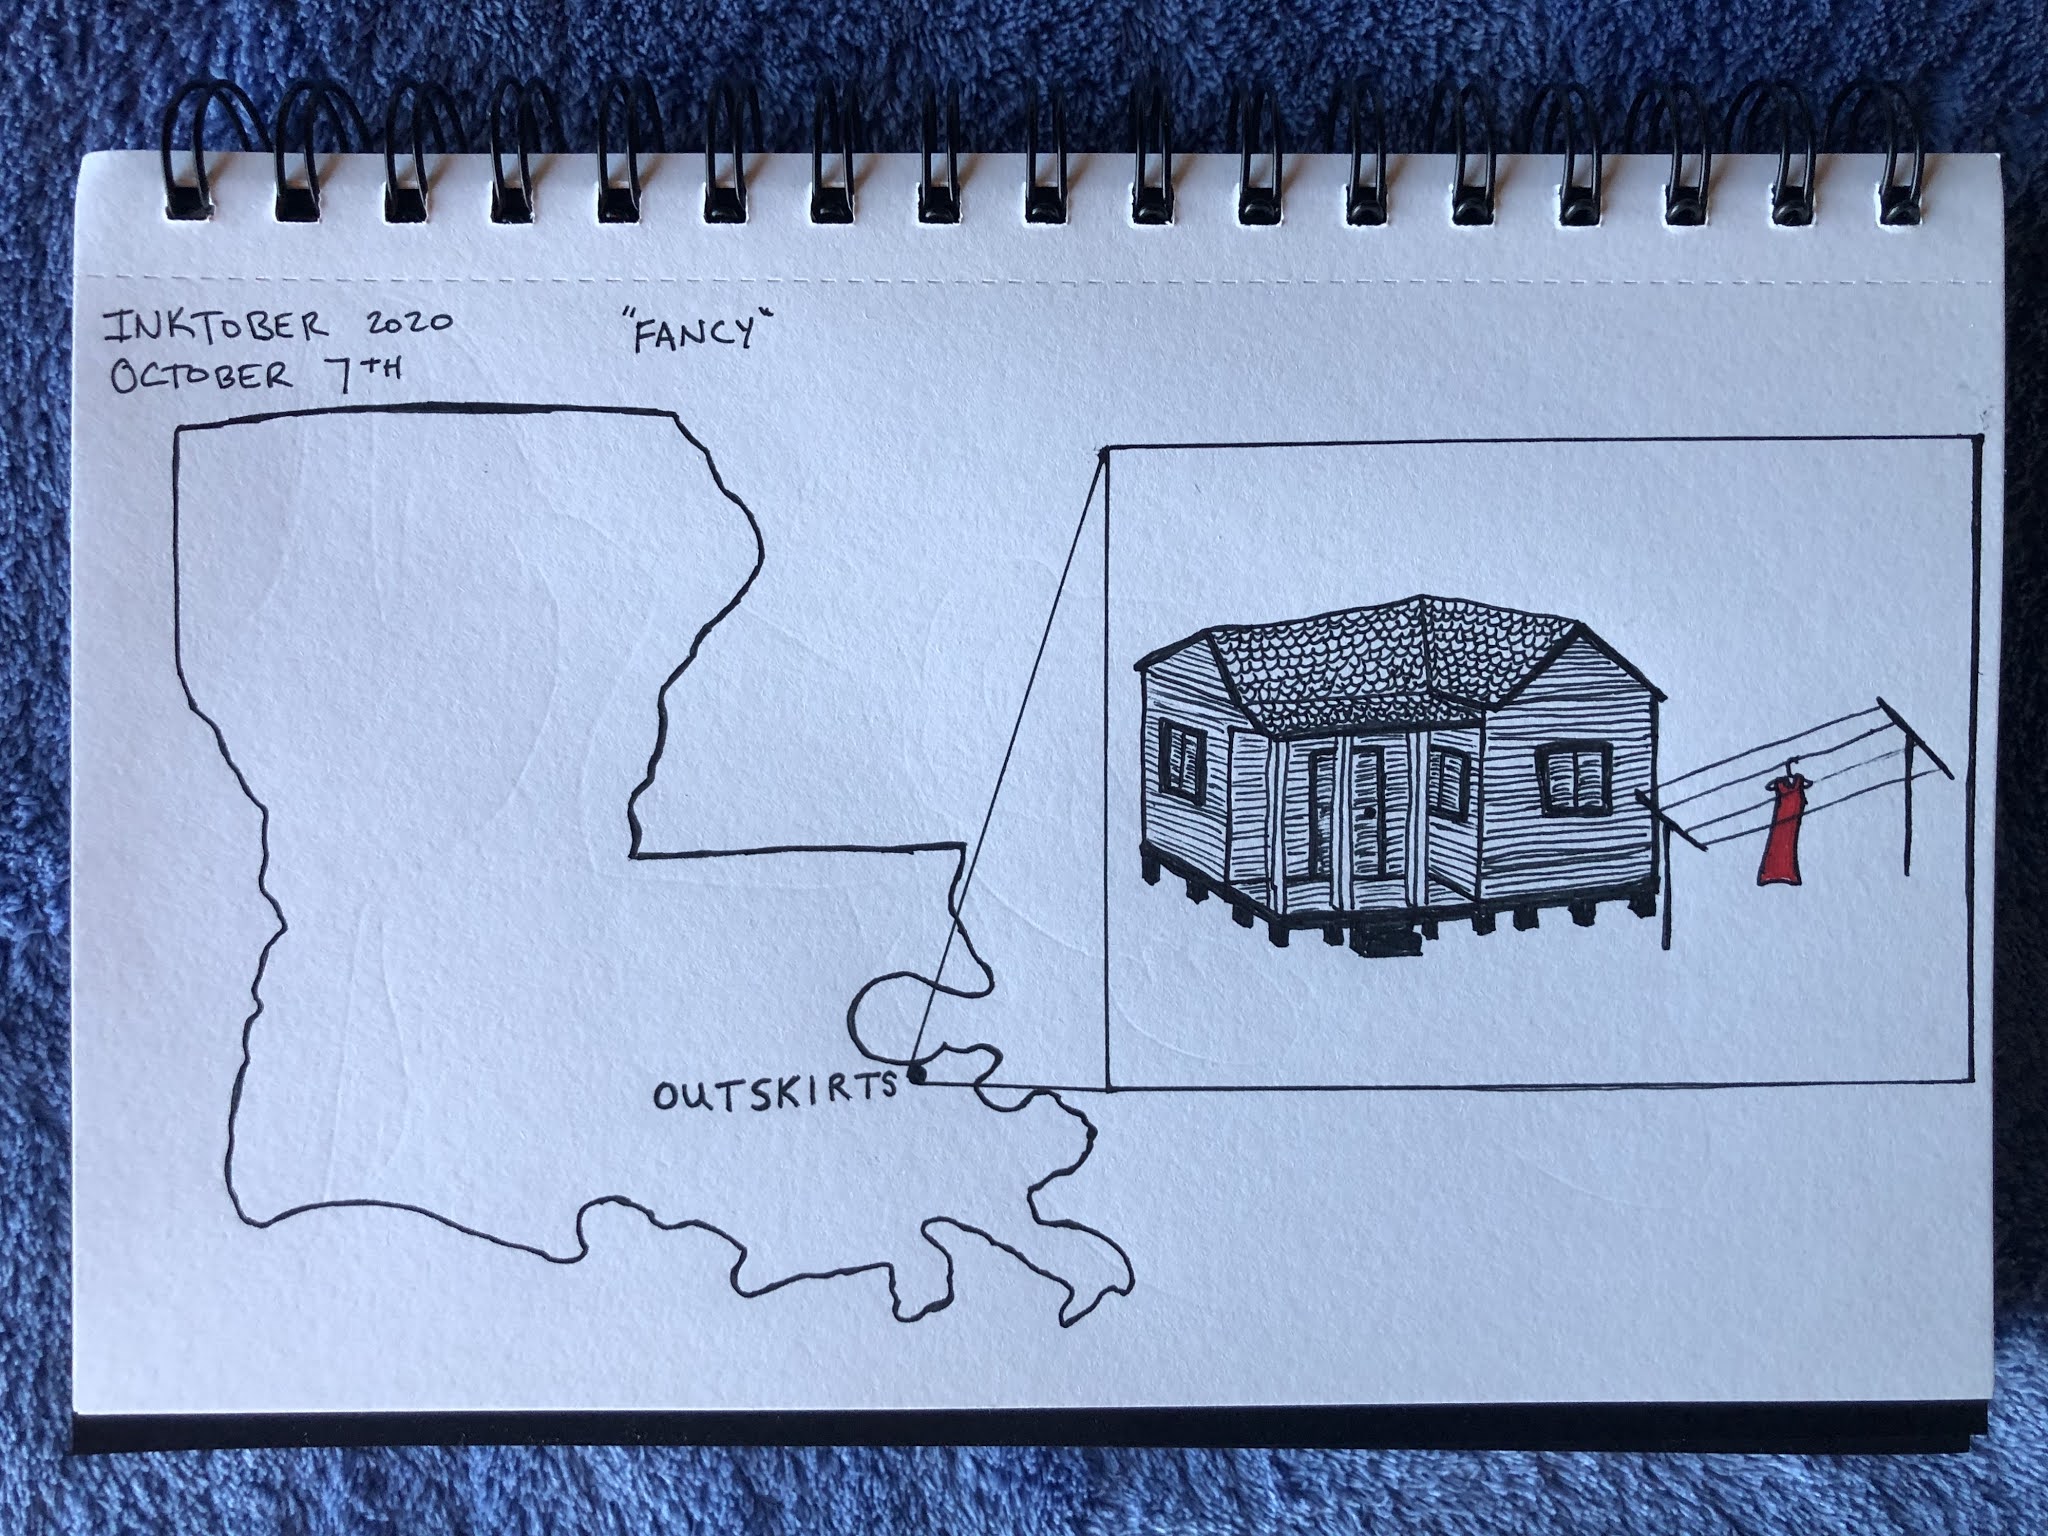 INKTOBER 2020
OCTOBER 7TH
"FANCY"
OUTSKIRTS